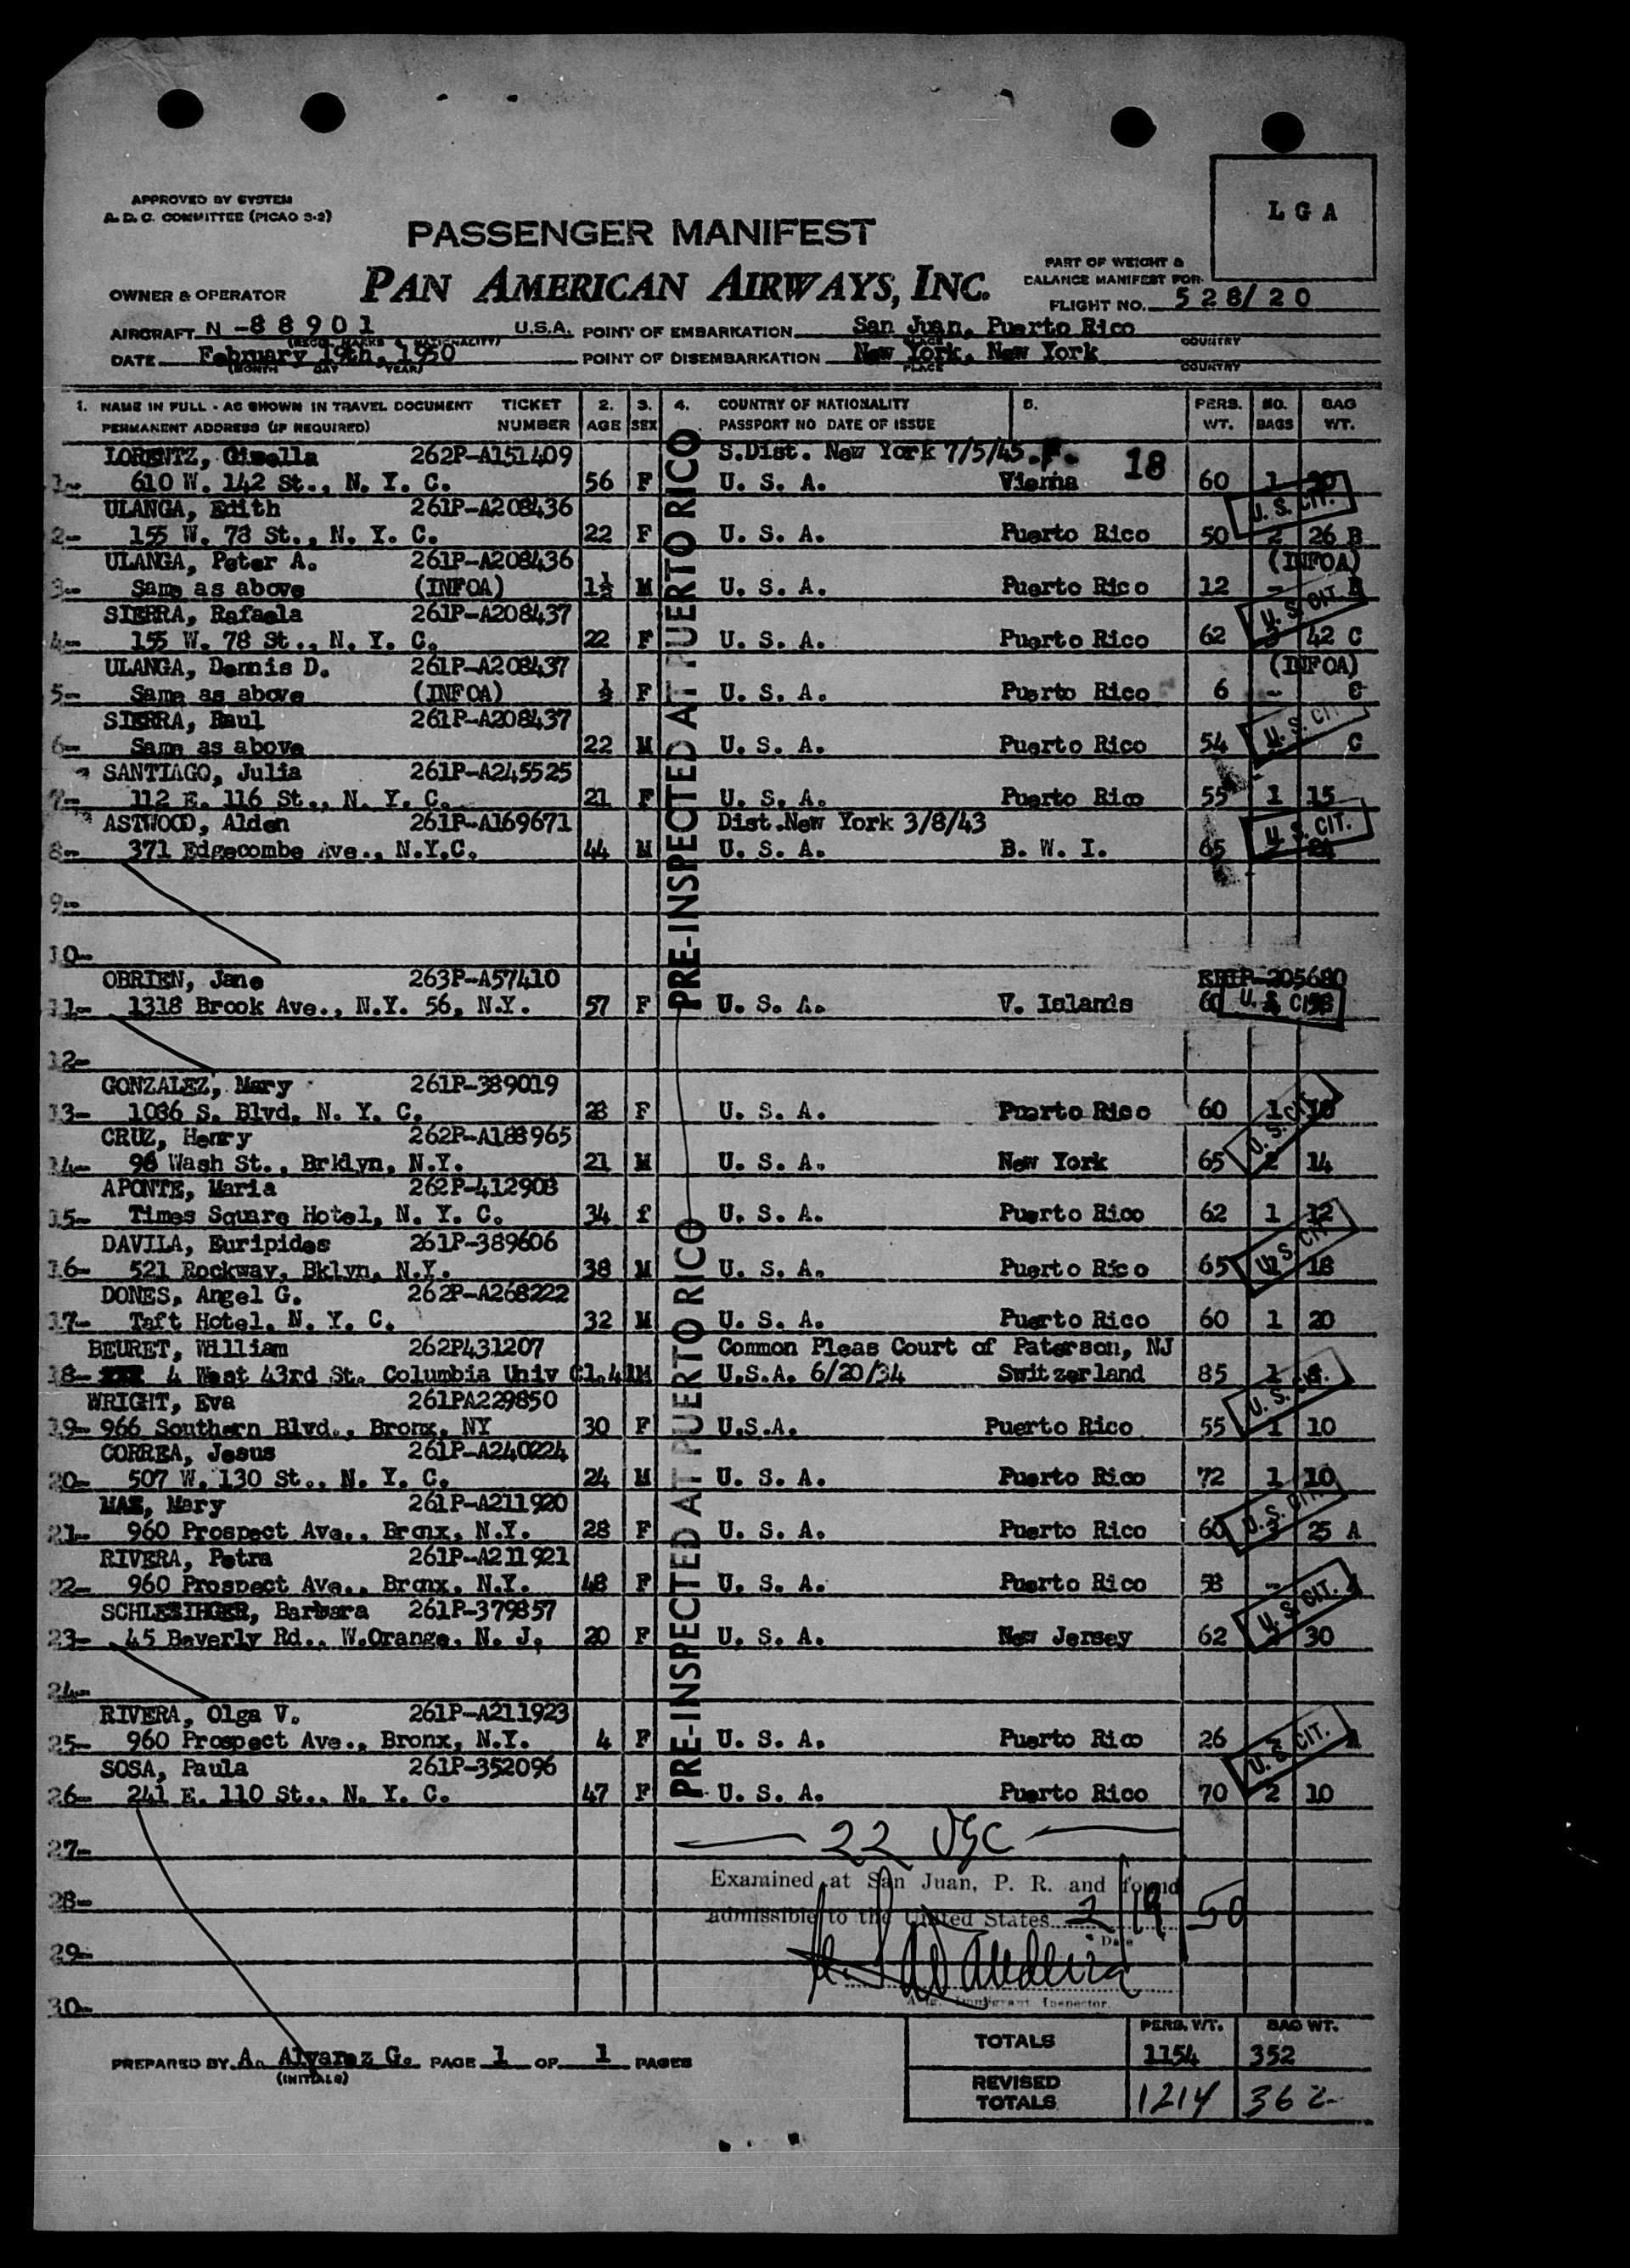 APPROVED BY SYSTEM
A. D. C. COMMITTEE (PICAO 3-2)
L G A
PASSENGER MANIFEST
PAN AMERICAN AIRWAYS, INC.
PART OF WEIGHT &
BALANCE MANIFEST FOR
OWNER & OPERATOR
FLIGHT NO. 5 2 8/ 2 0
AIRCRAFT N -8 8 9 0 1 U.S.A. POINT OF EMBARKATION San Juan, Puerto Rico
(REGD. MARKS & NATIONALITY) PLACE COUNTRY
DATE February 19th, 1950 POINT OF DISEMBARKATION New York, New York
(MONTH DAY YEAR) PLACE COUNTRY
1. NAME IN FULL - AS SHOWN IN TRAVEL DOCUMENT TICKET 2. 3. 4. COUNTRY OF NATIONALITY 5. PERS. NO. BAG
PERMANENT ADDRESS (IF REQUIRED) NUMBER AGE SEX PASSPORT NO DATE OF ISSUE WT. BAGS WT.
LORENTZ, Gisella 262P-A151409 S.Dist. New York 7/5/45 18
1- 610 W. 142 St., N. Y. C. 56 F U. S. A. Vienna 60 1
ULANGA, Edith 261P-A208436 U. S. CIT.
2- 155 W. 78 St., N. Y. C. 22 F U. S. A. Puerto Rico 50 2 26 B
ULANGA, Peter A. 261P-A208436 (INFOA)
3- Same as above (INFOA) 1½ M U. S. A. Puerto Rico 12 - B
SIERRA, Rafaela 261P-A208437 U. S. CIT.
4- 155 W. 78 St., N. Y. C. 22 F U. S. A. Puerto Rico 62 42 C
ULANGA, Dennis D. 261P-A208437 (INFOA)
5- Same as above (INFOA) ½ F U. S. A. Puerto Rico 6 - C
SIERRA, Raul 261P-A208437 U. S. CIT
6- Same as above 22 M U. S. A. Puerto Rico 54 C
SANTIAGO, Julia 261P-A245525
7- 112 E. 116 St., N. Y. C. 21 F U. S. A. Puerto Rico 55 1 15
ASTWOOD, Alden 261P-A169671 Dist.New York 3/8/43 U. S. CIT.
8- 371 Edgecombe Ave., N.Y.C. 44 M U. S. A. B. W. I. 65
PRE-INSPECTED AT PUERTO RICO
9-
10-
OBRIEN, Jane 263P-A57410 205680
11- 1318 Brook Ave., N.Y. 56, N.Y. 57 F U. S. A. V. Islands 60 U. S. CIT
12-
GONZALEZ, Mary 261P-389019
13- 1086 S. Blvd, N. Y. C. 28 F U. S. A. Puerto Rico 60 1
CRUZ, Henry 262P-A188965 U. S. CIT
14- 98 Wash St., Brklyn, N.Y. 21 M U. S. A. New York 65 2 14
APONTE, Maria 262P-412908
15- Times Square Hotel, N. Y. C. 34 f U. S. A. Puerto Rico 62 1 12
DAVILA, Euripides 261P-389606 U. S. CIT
16- 521 Rockway, Bklyn, N.Y. 38 M U. S. A. Puerto Rico 65 18
DONES, Angel G. 262P-A268222
17- Taft Hotel, N. Y. C. 32 M U. S. A. Puerto Rico 60 1 20
BEURET, William 262P431207 Common Pleas Court of Paterson, NJ
18- 4 West 43rd St. Columbia Univ Cl.41M U.S.A. 6/20/34 Switzerland 85 1
WRIGHT, Eva 261PA229850 U. S.
19- 966 Southern Blvd., Bronx, NY 30 F U.S.A. Puerto Rico 55 1 10
CORREA, Jesus 261P-A240224
20- 507 W. 130 St., N. Y. C. 24 M U. S. A. Puerto Rico 72 1 10
MAS, Mary 261P-A211920 U. S. CIT
21- 960 Prospect Ave., Bronx, N.Y. 28 F U. S. A. Puerto Rico 60 25 A
RIVERA, Petra 261P-A211921
22- 960 Prospect Ave., Bronx, N.Y. 48 F U. S. A. Puerto Rico 58 -
SCHLESINGER, Barbara 261P-379857 U. S. CIT.
23- 45 Beverly Rd., W.Orange, N. J, 20 F U. S. A. New Jersey 62 30
24-
RIVERA, Olga V. 261P-A211923
25- 960 Prospect Ave., Bronx, N.Y. 4 F U. S. A. Puerto Rico 26 A
SOSA, Paula 261P-352096 U. S. CIT.
26- 241 E. 110 St., N. Y. C. 47 F U. S. A. Puerto Rico 70 2 10
PRE-INSPECTED AT PUERTO RICO
27- 22 USC
Examined at San Juan, P. R. and found
28- admissible to the United States 2/19/50
Date
29-
Immigrant Inspector.
30-
TOTALS PERS. WT. 1154 BAG WT. 352
PREPARED BY A. Alvarez G. PAGE 1 OF 1 PAGES
(INITIALS)
REVISED TOTALS 1214 362